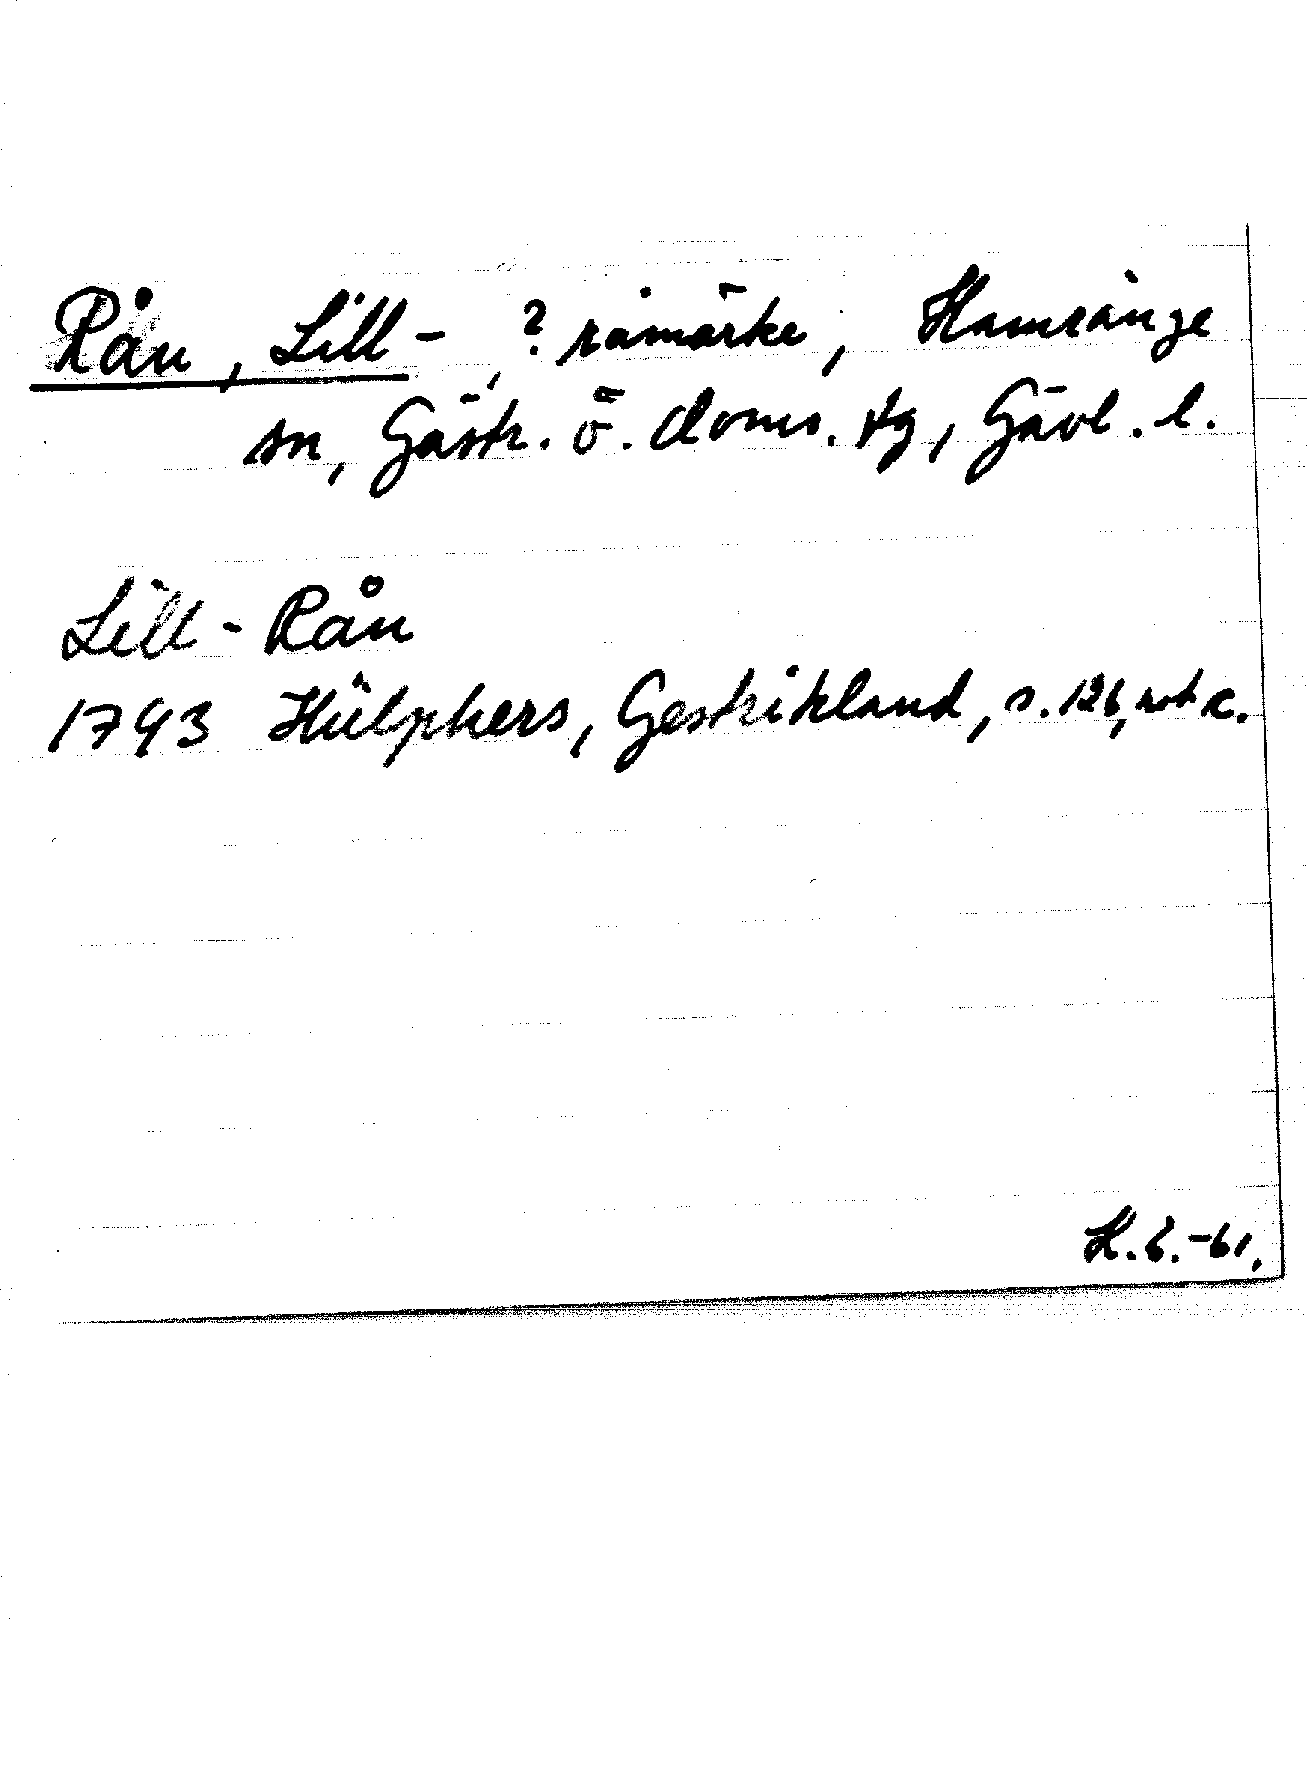 Rån, Lill-, ? råmärke, Hamrånge
sn, Gästr. ö. doms. tg, Gävl. l.
Lill-Rån
1793 Hülphers, Gestrikland, s. 126, not x.
H. 6. -61.